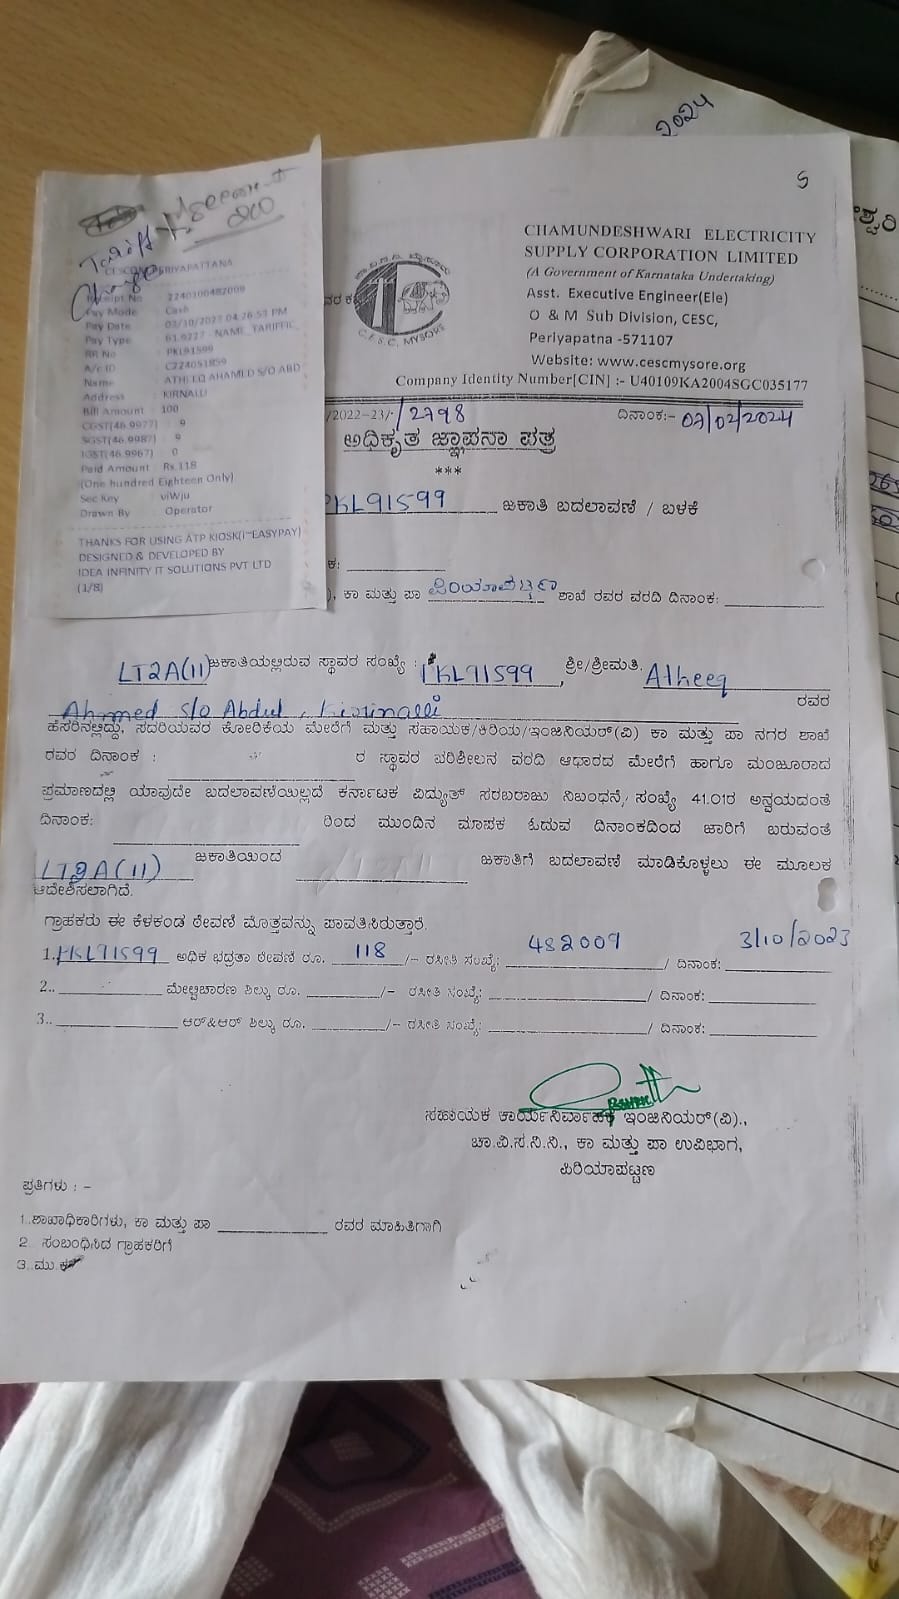 2024
5
Tariff
Change
CESCOM PERIYAPATTANA
Receipt No : 2240300482009
Pay Mode : Cash
Pay Date : 03/10/2023 04:26:53 PM
Pay Type : 61.9227 - NAME_TARIFFIC_
RR No : PKL91599
A/c ID : C224051859
Name : ATHEEQ AHAMED S/O ABD
Address : KIRNALLI
Bill Amount : 100
CGST(46.9977) : 9
SGST(46.9987) : 9
IGST(46.9967) : 0
Paid Amount : Rs.118
(One hundred Eighteen Only)
Sec Key : viWju
Drawn By : Operator
THANKS FOR USING ATP KIOSK(I-EASYPAY)
DESIGNED & DEVELOPED BY
IDEA INFINITY IT SOLUTIONS PVT LTD
(1/8)
C.E.S.C. MYSORE
CHAMUNDESHWARI ELECTRICITY
SUPPLY CORPORATION LIMITED
(A Government of Karnataka Undertaking)
Asst. Executive Engineer(Ele)
O & M Sub Division, CESC,
Periyapatna -571107
Website: www.cescmysore.org
Company Identity Number[CIN] :- U40109KA2004SGC035177
/2022-23/-/2798 ದಿನಾಂಕ:- 07/02/2024
ಅಧಿಕೃತ ಜ್ಞಾಪನಾ ಪತ್ರ
***
PKL91599 ಜಕಾತಿ ಬದಲಾವಣೆ / ಬಳಕೆ
ಕ:
), ಕಾ ಮತ್ತು ಪಾ ಪಿರಿಯಾಪಟ್ಟಣ ಶಾಖೆ ರವರ ವರದಿ ದಿನಾಂಕ:
LT2A(11) ಜಕಾತಿಯಲ್ಲಿರುವ ಸ್ಥಾವರ ಸಂಖ್ಯೆ : PKL91599, ಶ್ರೀ/ಶ್ರೀಮತಿ. Atheeq
Ahamed S/o Abdul, Kirinalli ರವರ
ಹೆಸರಿನಲ್ಲಿದ್ದು, ಸದರಿಯವರ ಕೋರಿಕೆಯ ಮೇರೆಗೆ ಮತ್ತು ಸಹಾಯಕ/ಕಿರಿಯ/ಇಂಜಿನಿಯರ್(ವಿ) ಕಾ ಮತ್ತು ಪಾ ನಗರ ಶಾಖೆ
ರವರ ದಿನಾಂಕ : ರ ಸ್ಥಾವರ ಪರಿಶೀಲನ ವರದಿ ಆಧಾರದ ಮೇರೆಗೆ ಹಾಗೂ ಮಂಜೂರಾದ
ಪ್ರಮಾಣದಲ್ಲಿ ಯಾವುದೇ ಬದಲಾವಣೆಯಿಲ್ಲದೆ ಕರ್ನಾಟಕ ವಿದ್ಯುತ್ ಸರಬರಾಜು ನಿಬಂಧನೆ, ಸಂಖ್ಯೆ 41.01ರ ಅನ್ವಯದಂತೆ
ದಿನಾಂಕ: ರಿಂದ ಮುಂದಿನ ಮಾಪಕ ಓದುವ ದಿನಾಂಕದಿಂದ ಜಾರಿಗೆ ಬರುವಂತೆ
LT2A(11) ಜಕಾತಿಯಿಂದ ಜಕಾತಿಗೆ ಬದಲಾವಣೆ ಮಾಡಿಕೊಳ್ಳಲು ಈ ಮೂಲಕ
ಆದೇಶಿಸಲಾಗಿದೆ.
ಗ್ರಾಹಕರು ಈ ಕೆಳಕಂಡ ಠೇವಣಿ ಮೊತ್ತವನ್ನು ಪಾವತಿಸಿರುತ್ತಾರೆ.
1. PKL91599 ಅಧಿಕ ಭದ್ರತಾ ಠೇವಣಿ ರೂ. 118 /- ರಸೀತಿ ಸಂಖ್ಯೆ: 482009 / ದಿನಾಂಕ: 3/10/2023
2.. ಮೇಲ್ವಿಚಾರಣ ಶಿಲ್ಕು ರೂ. /- ರಸೀತಿ ಸಂಖ್ಯೆ: / ದಿನಾಂಕ:
3.. ಆರ್&ಆರ್ ಶಿಲ್ಕು ರೂ. /- ರಸೀತಿ ಸಂಖ್ಯೆ: / ದಿನಾಂಕ:
ಸಹಾಯಕ ಕಾರ್ಯನಿರ್ವಾಹಕ ಇಂಜಿನಿಯರ್(ವಿ).,
ಚಾ.ವಿ.ಸ.ನಿ.ನಿ., ಕಾ ಮತ್ತು ಪಾ ಉಪವಿಭಾಗ,
ಪಿರಿಯಾಪಟ್ಟಣ
ಪ್ರತಿಗಳು : -
1..ಶಾಖಾಧಿಕಾರಿಗಳು, ಕಾ ಮತ್ತು ಪಾ ರವರ ಮಾಹಿತಿಗಾಗಿ
2. ಸಂಬಂಧಿಸಿದ ಗ್ರಾಹಕರಿಗೆ
3..ಮು.ಕ